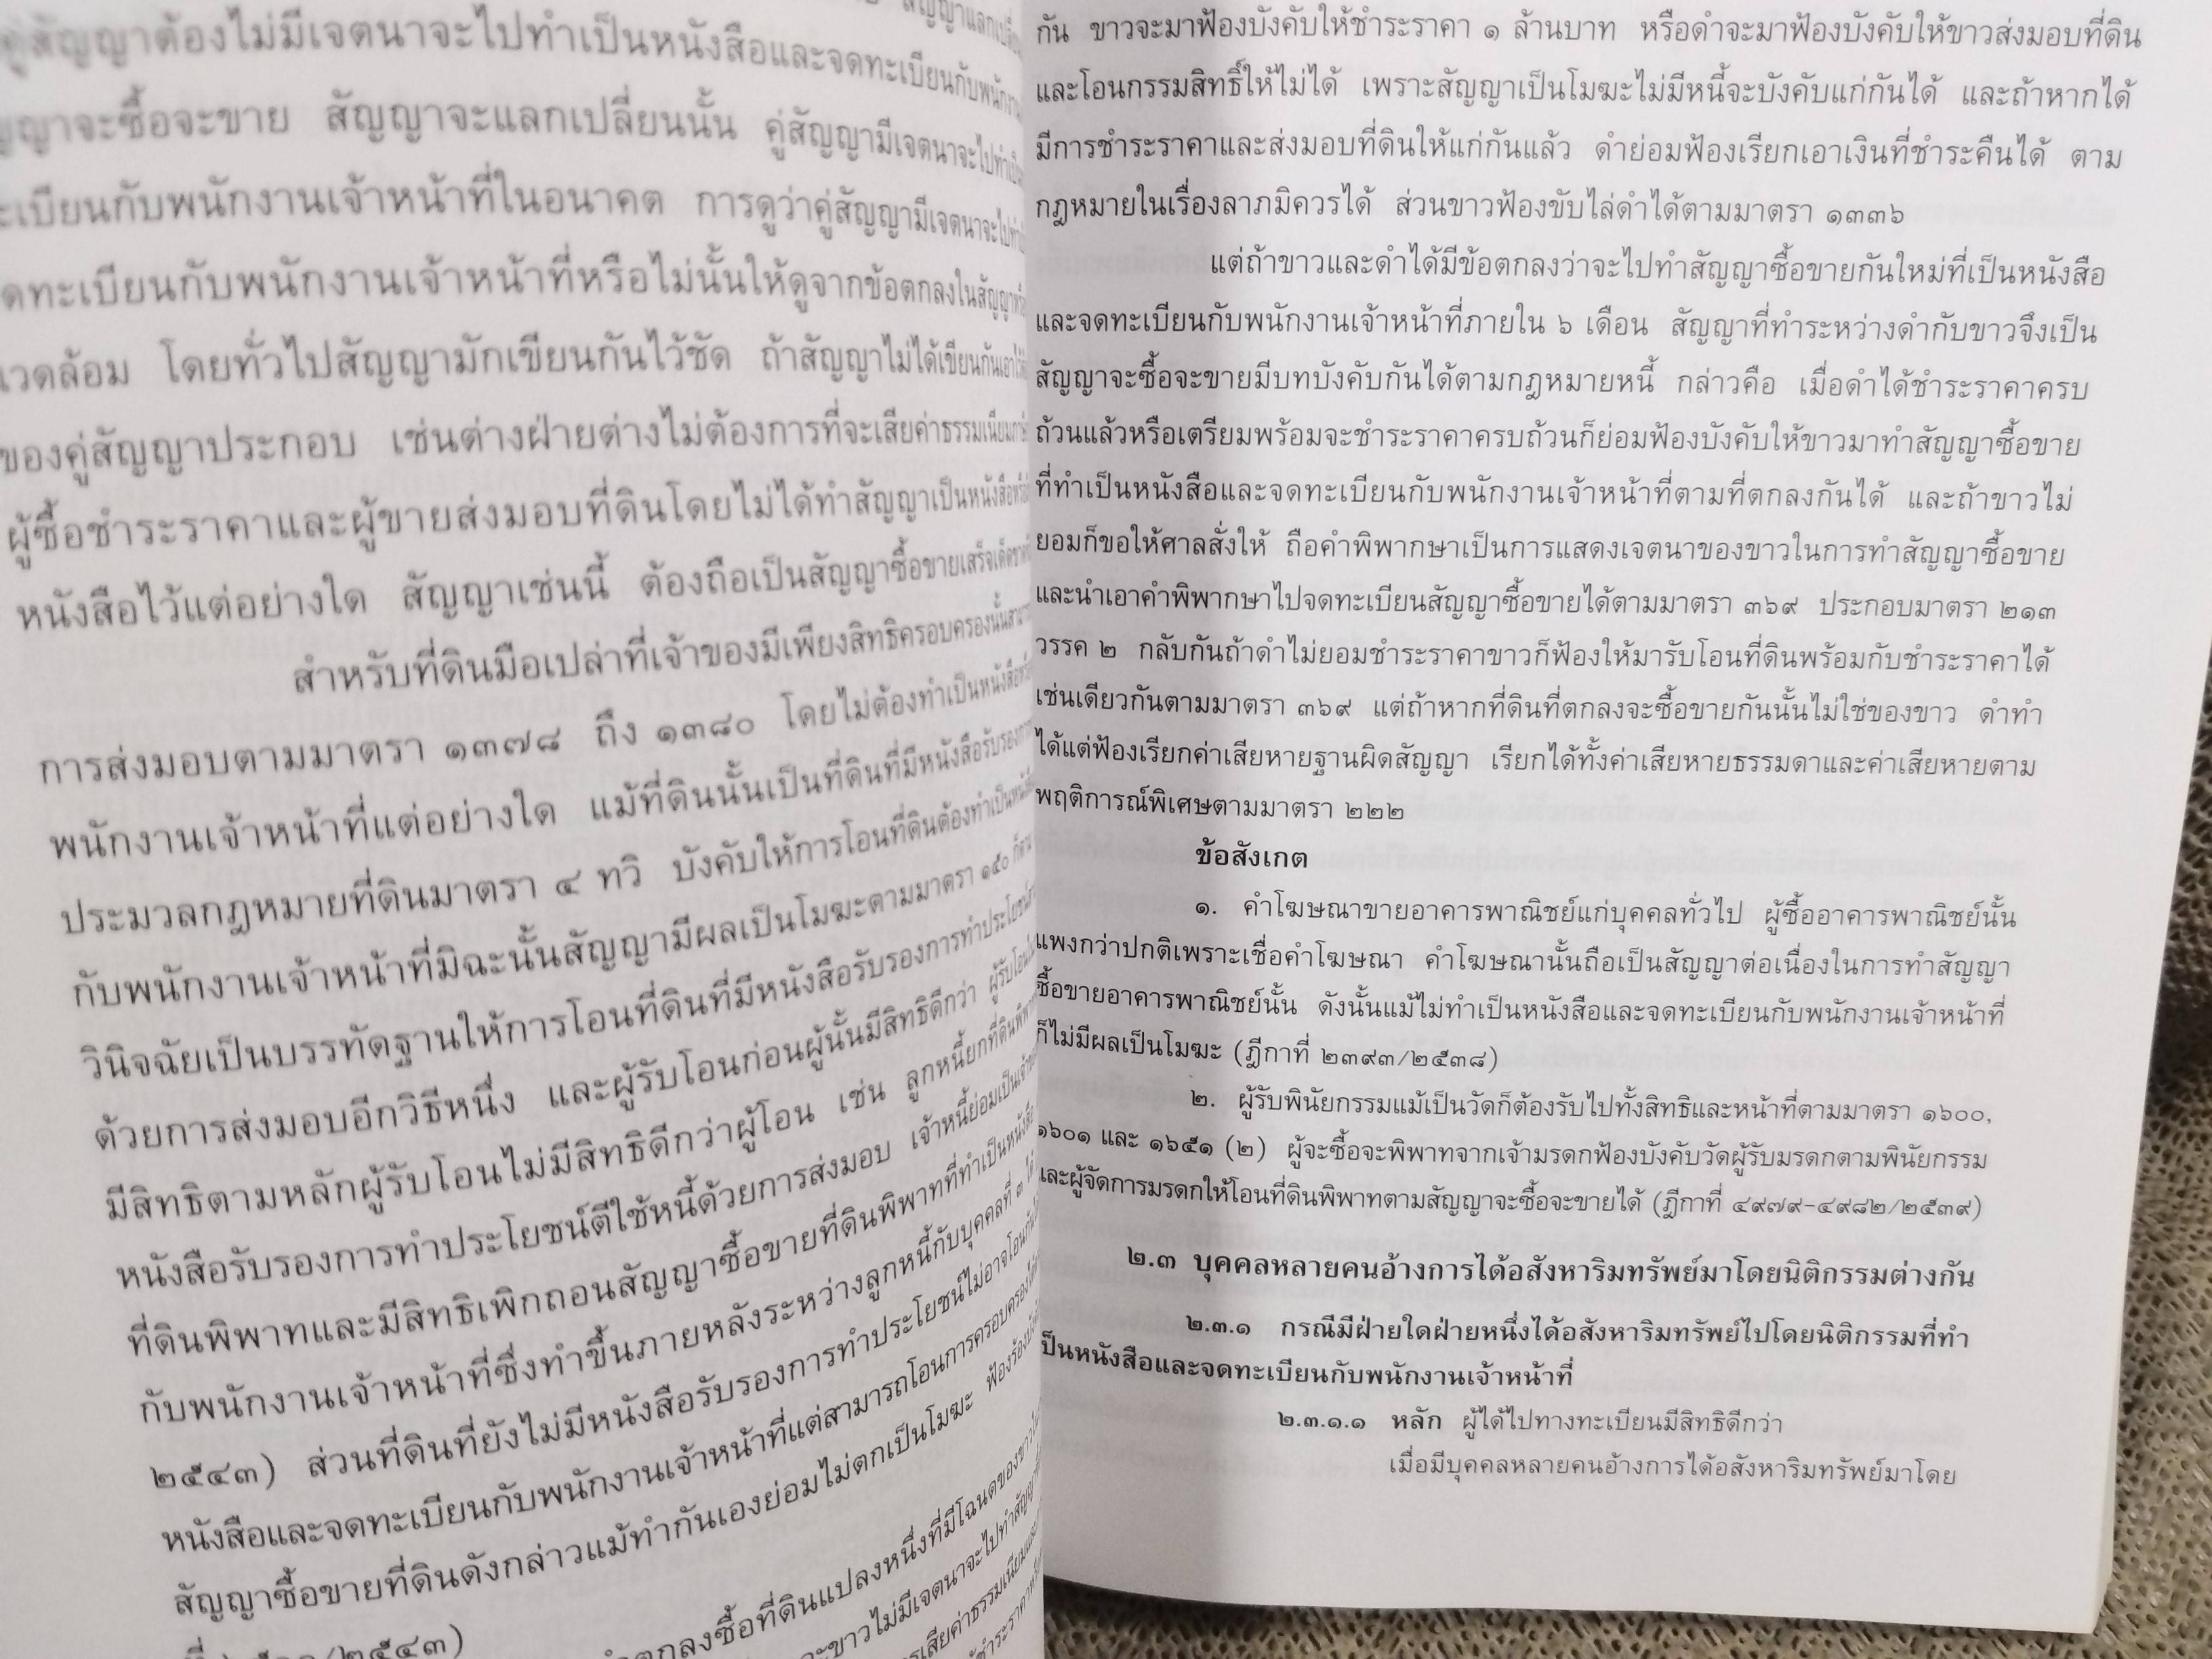 สัญญาแลกเปลี่ยน
คู่สัญญาต้องไม่มีเจตนาจะไปทำเป็นหนังสือและจดทะเบียนกับพนักงาน
สัญญาจะซื้อจะขาย สัญญาจะแลกเปลี่ยนนั้น คู่สัญญามีเจตนาจะไปทำเป็น
ะเบียนกับพนักงานเจ้าหน้าที่ในอนาคต การดูว่าคู่สัญญามีเจตนาจะไปทำ
ดทะเบียนกับพนักงานเจ้าหน้าที่หรือไม่นั้นให้ดูจากข้อตกลงในสัญญา
แวดล้อม โดยทั่วไปสัญญามักเขียนกันไว้ชัด ถ้าสัญญาไม่ได้เขียนกันเอาไว้
ของคู่สัญญาประกอบ เช่นต่างฝ่ายต่างไม่ต้องการที่จะเสียค่าธรรมเนียม
ผู้ซื้อชำระราคาและผู้ขายส่งมอบที่ดินโดยไม่ได้ทำสัญญาเป็นหนังสือ
หนังสือไว้แต่อย่างใด สัญญาเช่นนี้ ต้องถือเป็นสัญญาซื้อขายเสร็จเด็ดขาด
สำหรับที่ดินมือเปล่าที่เจ้าของมีเพียงสิทธิครอบครองนั้น
การส่งมอบตามมาตรา ๑๓๗๘ ถึง ๑๓๘๐ โดยไม่ต้องทำเป็นหนังสือ
พนักงานเจ้าหน้าที่แต่อย่างใด แม้ที่ดินนั้นเป็นที่ดินที่มีหนังสือรับรอง
ประมวลกฎหมายที่ดินมาตรา ๔ ทวิ บังคับให้การโอนที่ดินต้องทำเป็นหนังสือ
กับพนักงานเจ้าหน้าที่มิฉะนั้นสัญญามีผลเป็นโมฆะตามมาตรา ๑๕๐ ก็ตาม
วินิจฉัยเป็นบรรทัดฐานให้การโอนที่ดินที่มีหนังสือรับรองการทำประโยชน์
ด้วยการส่งมอบอีกวิธีหนึ่ง และผู้รับโอนก่อนผู้นั้นมีสิทธิดีกว่า ผู้รับโอน
มีสิทธิตามหลักผู้รับโอนไม่มีสิทธิดีกว่าผู้โอน เช่น ลูกหนี้ยกที่ดินพิพาท
หนังสือรับรองการทำประโยชน์ตีใช้หนี้ด้วยการส่งมอบ เจ้าหนี้ย่อมเป็นเจ้าของ
ที่ดินพิพาทและมีสิทธิเพิกถอนสัญญาซื้อขายที่ดินพิพาทที่ทำเป็นหนังสือ
กับพนักงานเจ้าหน้าที่ซึ่งทำขึ้นภายหลังระหว่างลูกหนี้กับบุคคลที่ ๓ ได้
๒๕๔๓) ส่วนที่ดินที่ยังไม่มีหนังสือรับรองการทำประโยชน์ไม่อาจโอนกัน
หนังสือและจดทะเบียนกับพนักงานเจ้าหน้าที่แต่สามารถโอนการครอบครอง
สัญญาซื้อขายที่ดินดังกล่าวแม้ทำกันเองย่อมไม่ตกเป็นโมฆะ ฟ้องร้อง
/๒๕๔๓)
ตกลงซื้อที่ดินแปลงหนึ่งที่มีโฉนดของขาว
ขาวไม่มีเจตนาจะไปทำสัญญา
เสียค่าธรรมเนียมและ
ชำระราคา
กัน ขาวจะมาฟ้องบังคับให้ชำระราคา ๑ ล้านบาท หรือดำจะมาฟ้องบังคับให้ขาวส่งมอบที่ดิน
และโอนกรรมสิทธิ์ให้ไม่ได้ เพราะสัญญาเป็นโมฆะไม่มีหนี้จะบังคับแก่กันได้ และถ้าหากได้
มีการชำระราคาและส่งมอบที่ดินให้แก่กันแล้ว ดำย่อมฟ้องเรียกเอาเงินที่ชำระคืนได้ ตาม
กฎหมายในเรื่องลาภมิควรได้ ส่วนขาวฟ้องขับไล่ดำได้ตามมาตรา ๑๓๓๖
แต่ถ้าขาวและดำได้มีข้อตกลงว่าจะไปทำสัญญาซื้อขายกันใหม่ที่เป็นหนังสือ
และจดทะเบียนกับพนักงานเจ้าหน้าที่ภายใน ๖ เดือน สัญญาที่ทำระหว่างดำกับขาวจึงเป็น
สัญญาจะซื้อจะขายมีบทบังคับกันได้ตามกฎหมายหนี้ กล่าวคือ เมื่อดำได้ชำระราคาครบ
ถ้วนแล้วหรือเตรียมพร้อมจะชำระราคาครบถ้วนก็ย่อมฟ้องบังคับให้ขาวมาทำสัญญาซื้อขาย
ที่ทำเป็นหนังสือและจดทะเบียนกับพนักงานเจ้าหน้าที่ตามที่ตกลงกันได้ และถ้าขาวไม่
ยอมก็ขอให้ศาลสั่งให้ ถือคำพิพากษาเป็นการแสดงเจตนาของขาวในการทำสัญญาซื้อขาย
และนำเอาคำพิพากษาไปจดทะเบียนสัญญาซื้อขายได้ตามมาตรา ๓๖๙ ประกอบมาตรา ๒๑๓
วรรค ๒ กลับกันถ้าดำไม่ยอมชำระราคาขาวก็ฟ้องให้มารับโอนที่ดินพร้อมกับชำระราคาได้
เช่นเดียวกันตามมาตรา ๓๖๙ แต่ถ้าหากที่ดินที่ตกลงจะซื้อขายกันนั้นไม่ใช่ของขาว ดำทำ
ได้แต่ฟ้องเรียกค่าเสียหายฐานผิดสัญญา เรียกได้ทั้งค่าเสียหายธรรมดาและค่าเสียหายตาม
พฤติการณ์พิเศษตามมาตรา ๒๒๒
ข้อสังเกต
๑. คำโฆษณาขายอาคารพาณิชย์แก่บุคคลทั่วไป ผู้ซื้ออาคารพาณิชย์นั้น
แพงกว่าปกติเพราะเชื่อคำโฆษณา คำโฆษณานั้นถือเป็นสัญญาต่อเนื่องในการทำสัญญา
ซื้อขายอาคารพาณิชย์นั้น ดังนั้นแม้ไม่ทำเป็นหนังสือและจดทะเบียนกับพนักงานเจ้าหน้าที่
ก็ไม่มีผลเป็นโมฆะ (ฎีกาที่ ๒๓๙๓/๒๕๓๘)
๒. ผู้รับพินัยกรรมแม้เป็นวัดก็ต้องรับไปทั้งสิทธิและหน้าที่ตามมาตรา ๑๖๐๐,
๑๖๐๑ และ ๑๖๕๑ (๒) ผู้จะซื้อจะพิพาทจากเจ้ามรดกฟ้องบังคับวัดผู้รับมรดกตามพินัยกรรม
และผู้จัดการมรดกให้โอนที่ดินพิพาทตามสัญญาจะซื้อจะขายได้ (ฎีกาที่ ๔๙๗๙-๔๙๘๒/๒๕๓๙)
๒.๓ บุคคลหลายคนอ้างการได้อสังหาริมทรัพย์มาโดยนิติกรรมต่างกัน
๒.๓.๑ กรณีมีฝ่ายใดฝ่ายหนึ่งได้อสังหาริมทรัพย์ไปโดยนิติกรรมที่ทำ
ป็นหนังสือและจดทะเบียนกับพนักงานเจ้าหน้าที่
๒.๓.๑.๑ หลัก ผู้ได้ไปทางทะเบียนมีสิทธิดีกว่า
เมื่อมีบุคคลหลายคนอ้างการได้อสังหาริมทรัพย์มาโดย